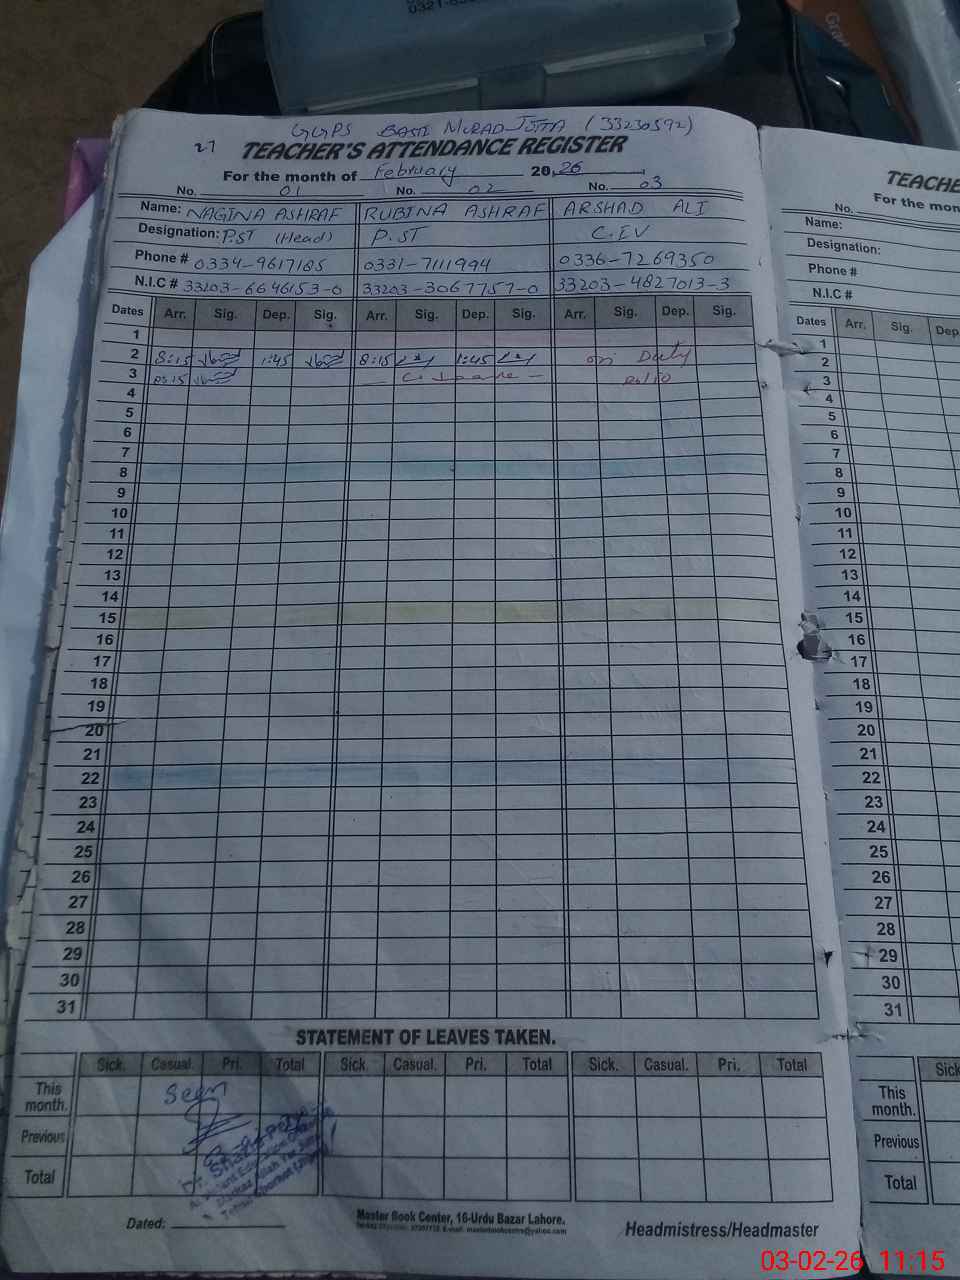 GGPS BASTI MURAD JUTTA (33230592)
27 TEACHER'S ATTENDANCE REGISTER
For the month of February 2026
No. 01 No. 02 No. 03
Name: NAGINA ASHRAF RUBINA ASHRAF ARSHAD ALI
Designation: P.ST (Head) P.ST C.IV
Phone # 0334-9617185 0331-7111994 0336-7269350
N.I.C # 33203-6646153-0 33203-3067757-0 33203-4827013-3
Dates Arr. Sig. Dep. Sig. Arr. Sig. Dep. Sig. Arr. Sig. Dep. Sig.
1
2 8:15 1:45 8:15 1:45 on Duty
3 08:15 C. Leave Polio
4
5
6
7
8
9
10
11
12
13
14
15
16
17
18
19
20
21
22
23
24
25
26
27
28
29
30
31
STATEMENT OF LEAVES TAKEN.
Sick. Casual. Pri. Total Sick. Casual. Pri. Total Sick. Casual. Pri. Total
This month. Seen
Previous
Total
Dated:
Master Book Center, 16-Urdu Bazar Lahore.
Headmistress/Headmaster
TEACHE
For the mon
No.
Name:
Designation:
Phone #
N.I.C #
Dates Arr. Sig. Dep
1
2
3
4
5
6
7
8
9
10
11
12
13
14
15
16
17
18
19
20
21
22
23
24
25
26
27
28
29
30
31
Sick
This month.
Previous
Total
03-02-26 11:15